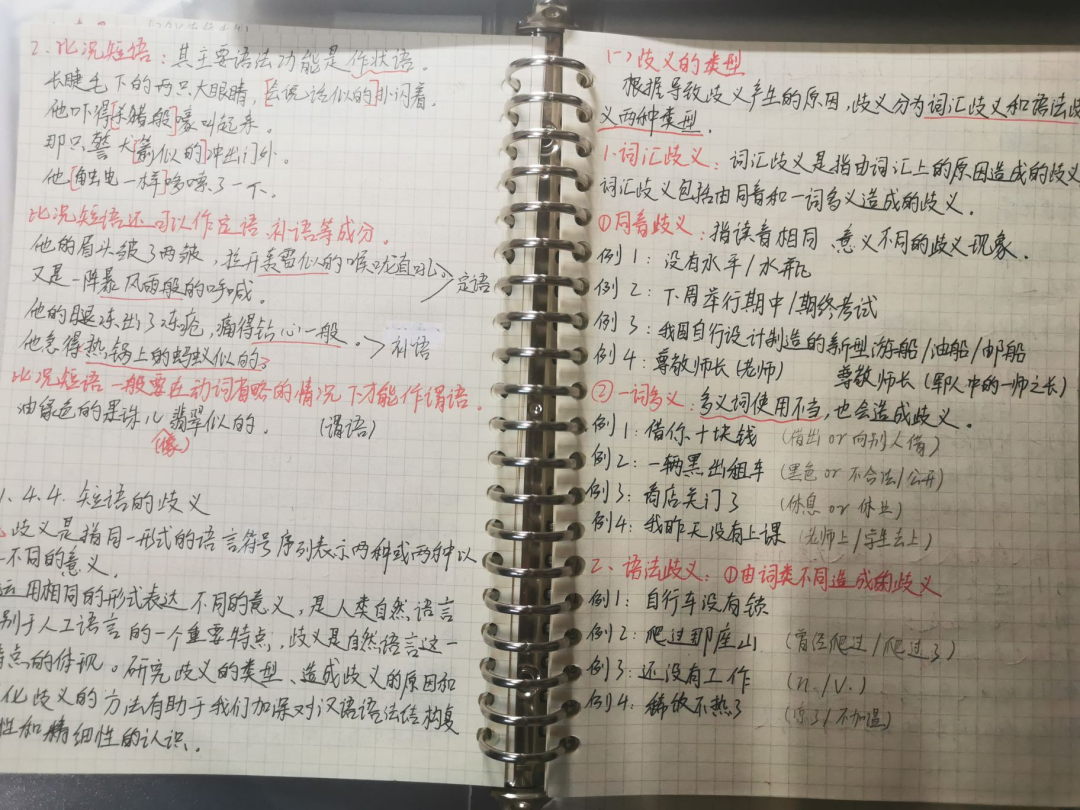 2. 比况短语：其主要语法功能是作状语。
长睫毛下的两只大眼睛，[会说话似的]扑闪着。
他吓得[杀猪般]嚎叫起来。
那只警犬[箭似的]冲出门外。
他[触电一样]哆嗦了一下。
比况短语还可以作定语、补语等成分。
他的眉头皱了两皱，拉开
似的喉咙直吼。
又是一阵暴风雨般的呼喊。
定语
他的腿冻出了冻疮，痛得钻心一般。
他急得热锅上的蚂蚁似的。
补语
比况短语一般要在动词省略的情况下才能作谓语。
油绿色的果珠儿翡翠似的。（谓语）
（像）
4.4. 短语的歧义
歧义是指同一形式的语言符号序列表示两种或两种以
不同的意义。
运用相同的形式表达不同的意义，是人类自然语言
别于人工语言的一个重要特点，歧义是自然语言这一
特点的体现。研究歧义的类型、造成歧义的原因和
化歧义的方法有助于我们加深对汉语语法结构复
性和精细性的认识。
(一) 歧义的类型
根据导致歧义产生的原因，歧义分为词汇歧义和语法歧
义两种类型。
1. 词汇歧义：词汇歧义是指由词汇上的原因造成的歧义
词汇歧义包括由同音和一词多义造成的歧义。
①同音歧义：指读音相同、意义不同的歧义现象。
例1：没有水平/水瓶
例2：下周举行期中/期终考试
例3：我国自行设计制造的新型游船/油船/邮船
例4：尊敬师长（老师） 尊敬师长（军队中的一师之长）
②一词多义：多义词使用不当，也会造成歧义。
例1：借你十块钱（借出or向别人借）
例2：一辆黑出租车（黑色or不合法/公开）
例3：商店关门了（休息or休业）
例4：我昨天没有上课（老师上/学生去上）
2、语法歧义：①由词类不同造成的歧义
例1：自行车没有锁
例2：爬过那座山（曾经爬过/爬过了）
例3：还没有工作（n./v.）
例4：稀饭不热了（凉了/不加温）